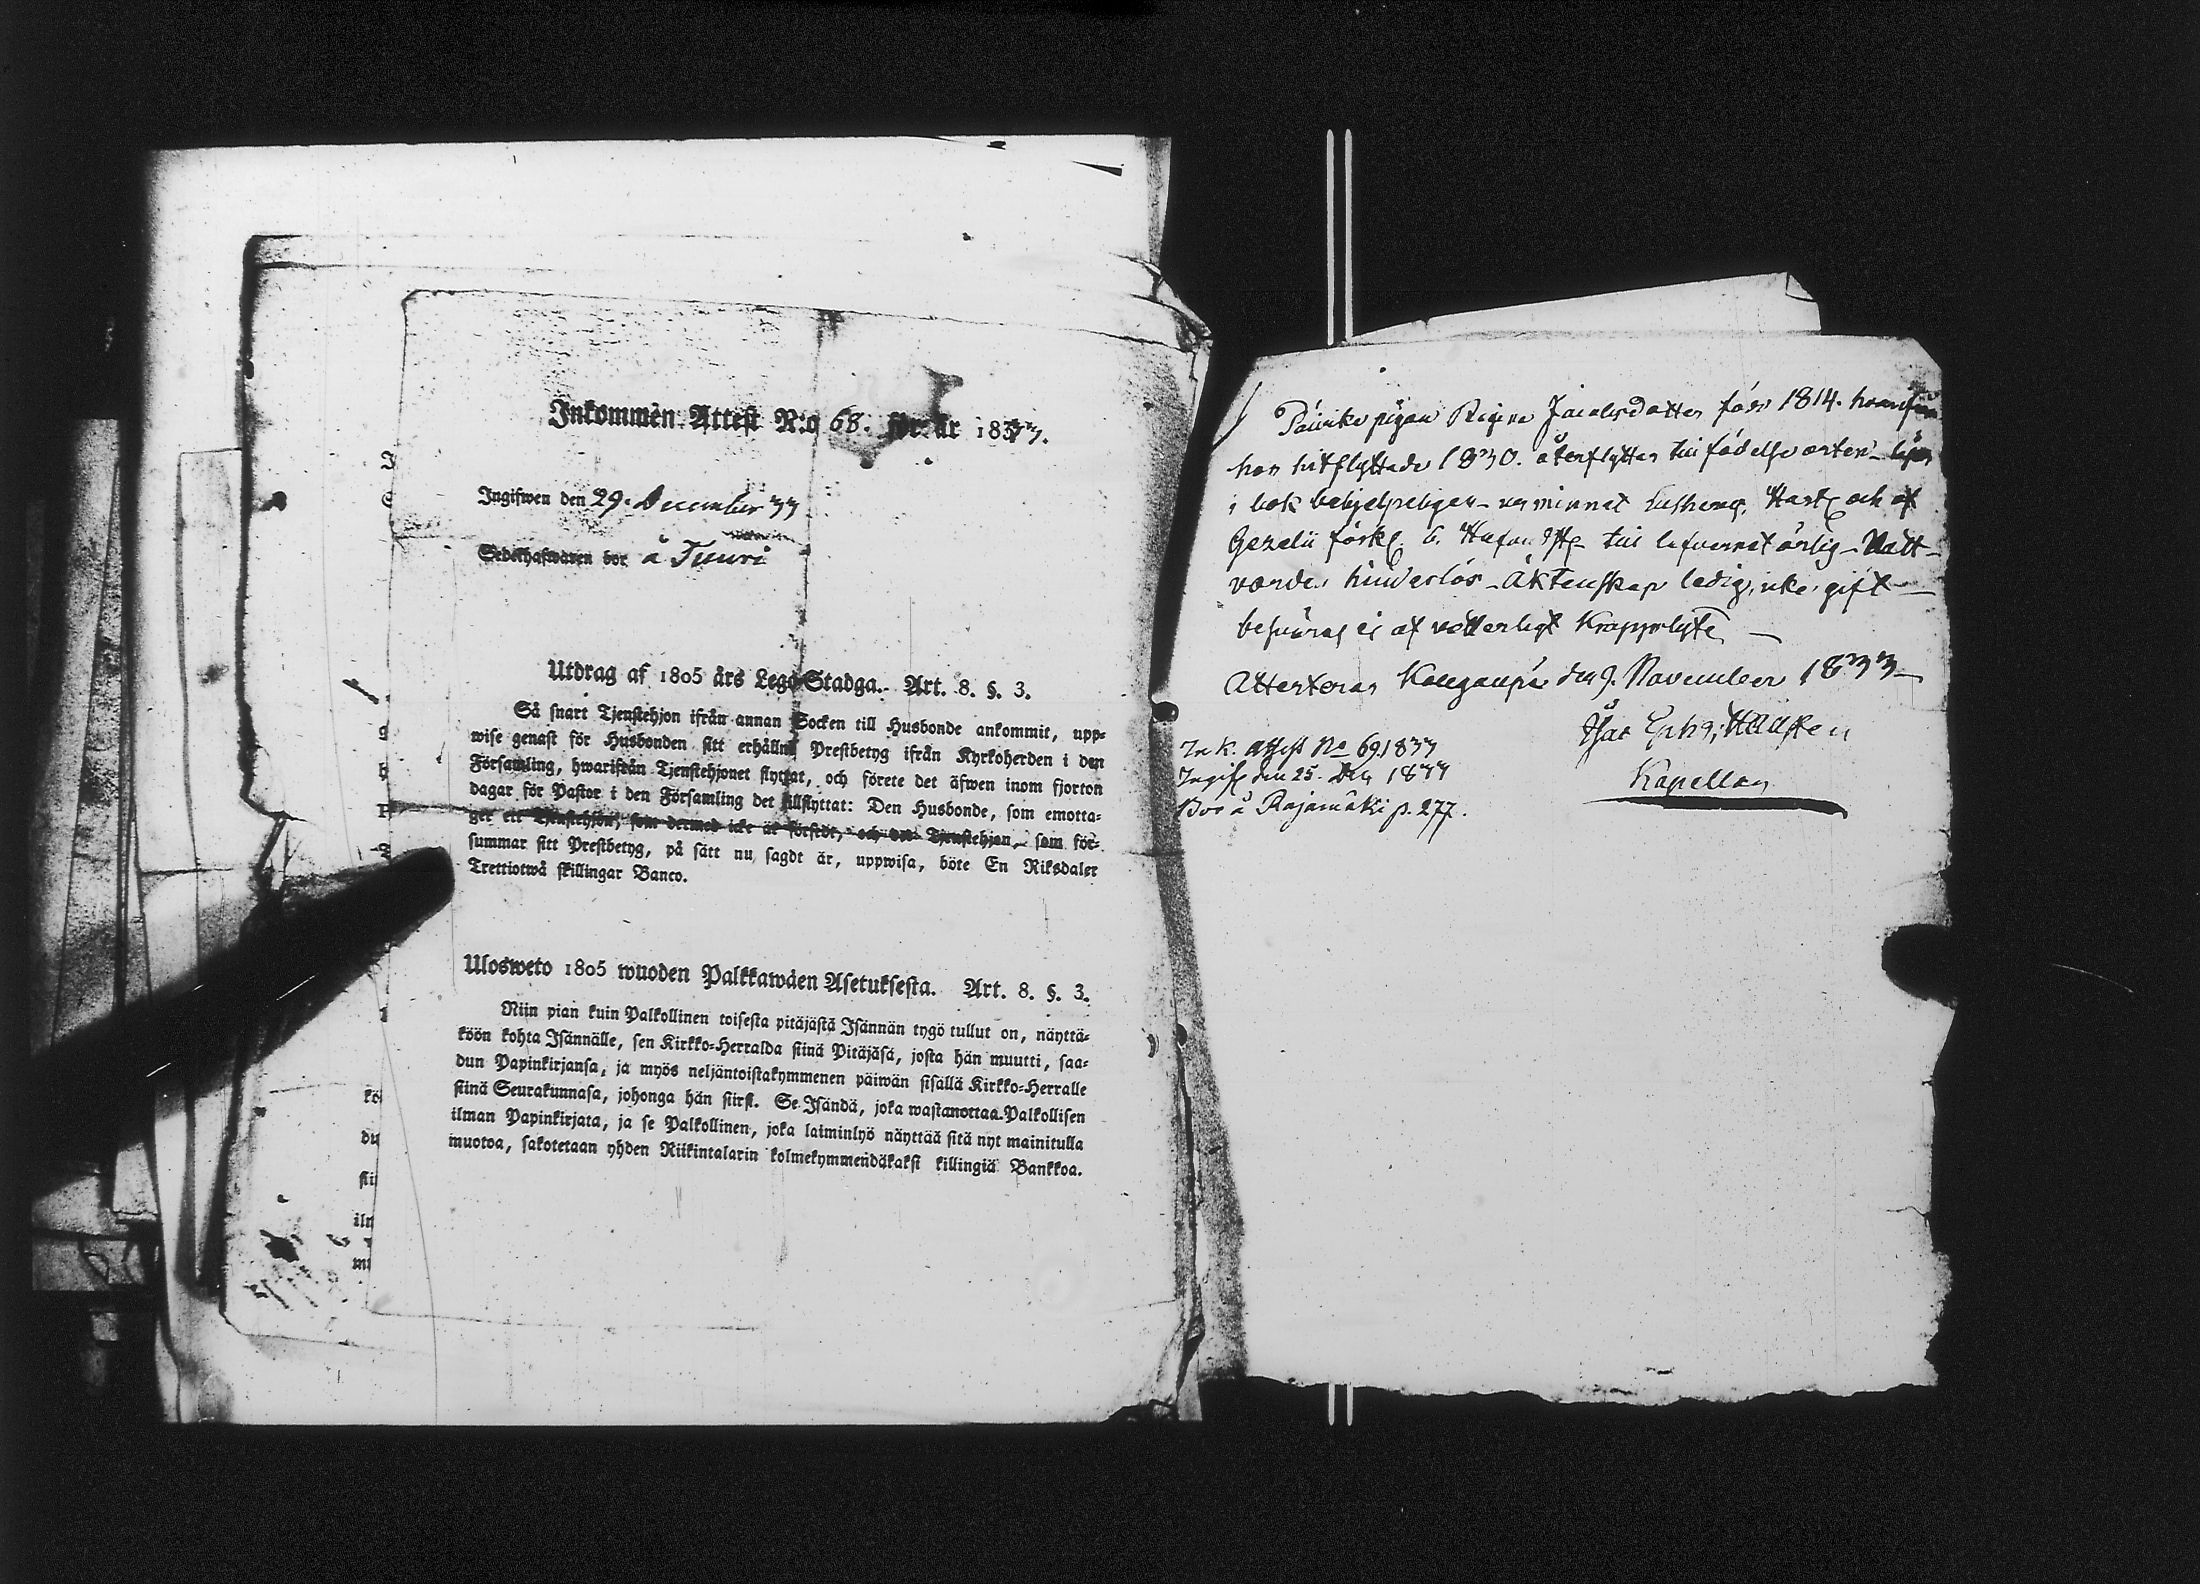 Inkommen Attest N:o 68. för år 1833.
Ingifwen den 29. December 33
Sedelhafwaren bor å Tuuri
Utdrag af 1805 års Lego-Stadga. Art. 8. §. 3.
Så snart Tjenstehjon ifrån annan Socken till Husbonde ankommit, upp-
wise genast för Husbonden sitt erhållna Prestbetyg ifrån Kyrkoherden i den
Församling, hwarifrån Tjenstehjonet flyttat, och förete det äfwen inom fjorton
dagar för Pastor i den Församling det tillflyttat: Den Husbonde, som emotta-
ger ett Tjenstehjon, som dermed icke är försedt, och det Tjenstehjon, som för-
summar sitt Prestbetyg, på sätt nu sagdt är, uppwisa, böte En Riksdaler
Trettiotwå skillingar Banco.
Ulosweto 1805 wuoden Palkkawäen Asetuksesta. Art. 8. §. 3.
Niin pian kuin Palkollinen toisesta pitäjästä Isännän tygö tullut on, näyttä-
köön kohta Isännälle, sen Kirkko-Herralda siinä Pitäjäsä, josta hän muutti, saa-
dun Papinkirjansa, ja myös neljäntoistakymmenen päiwän sisällä Kirkko-Herralle
siinä Seurakunnasa, johonga hän siirsi. Se Isändä, joka wastanottaa Palkollisen
ilman Papinkirjata, ja se Palkollinen, joka laiminlyö näyttää sitä nyt mainitulla
muotoa, sakotetaan yhden Riikintalarin kolmekymmendäkaksi killingiä Bankkoa.
pigan Regina Jacobsdotter född 1814. hwarifrån
hon hitflyttade 1830. återflyttar till födelse orten - läser
i bok behjelpeligen - och af
Gezelii förkl. till lefvernet ärlig - Natt-
varden hinderlös - Äktenskap ledig, icke gift -
besväras ej af vetterligt Kroppslyte -
Attesteras Kangaupä den 9. November 1833 -
Kapellan
Ink. Attest No 69. 1833
Ingif. den 25. Dec 1833
Bor å Rajamäki p. 277.